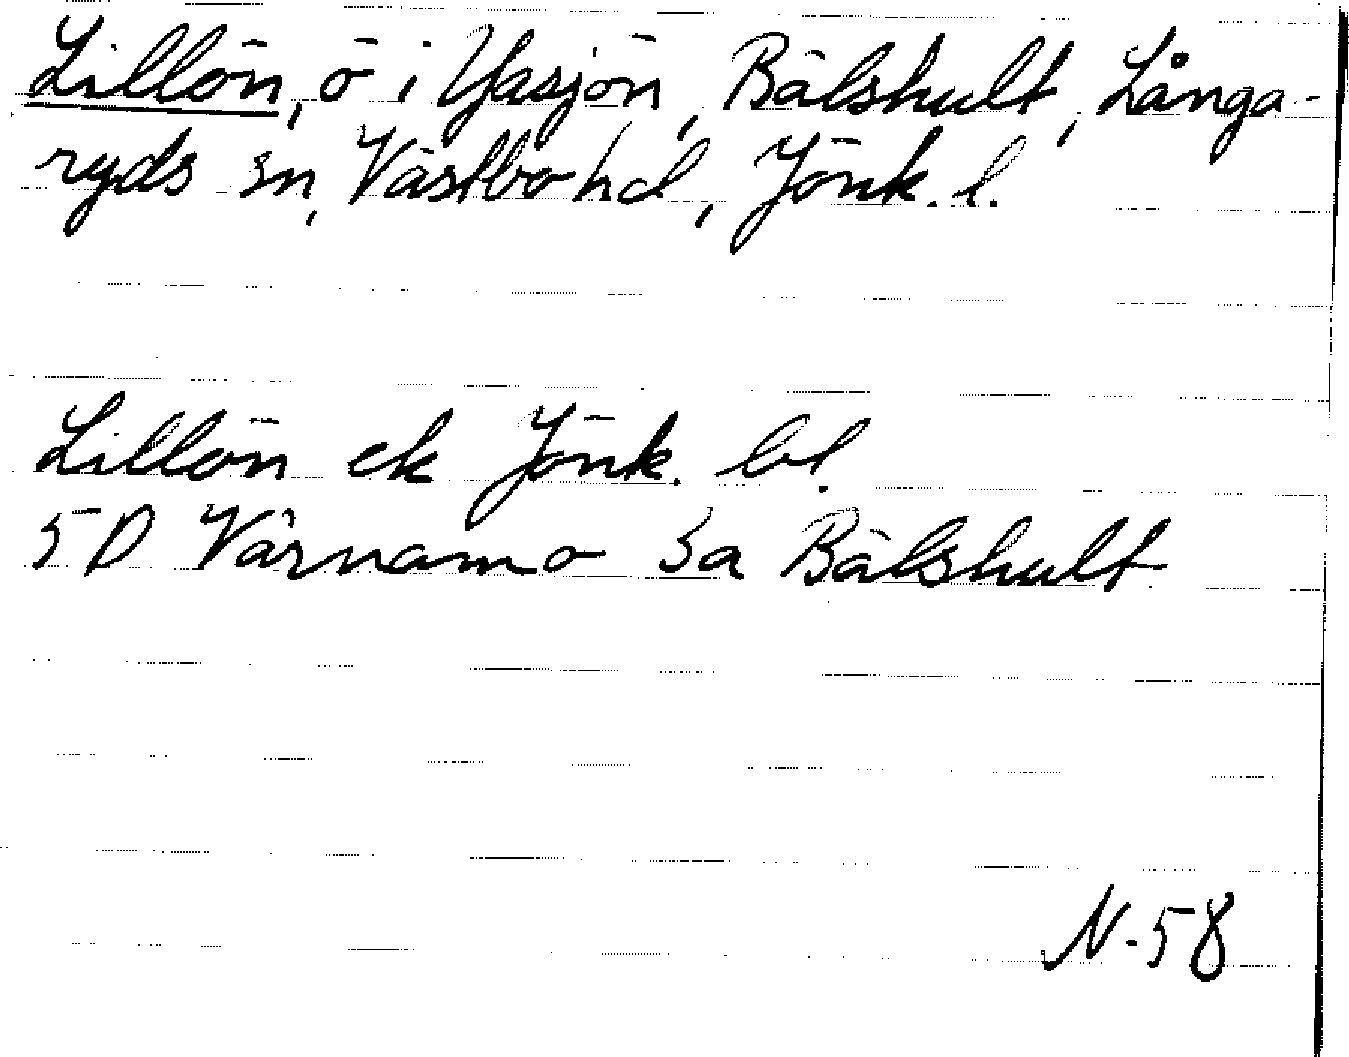 Lillön, ö i Yasjön, Bälshult, Långa-
ryds sn, Västbo hd, Jönk. l.
Lillön ek Jönk. bl.
5D Värnamo 3a Bälshult
N-58